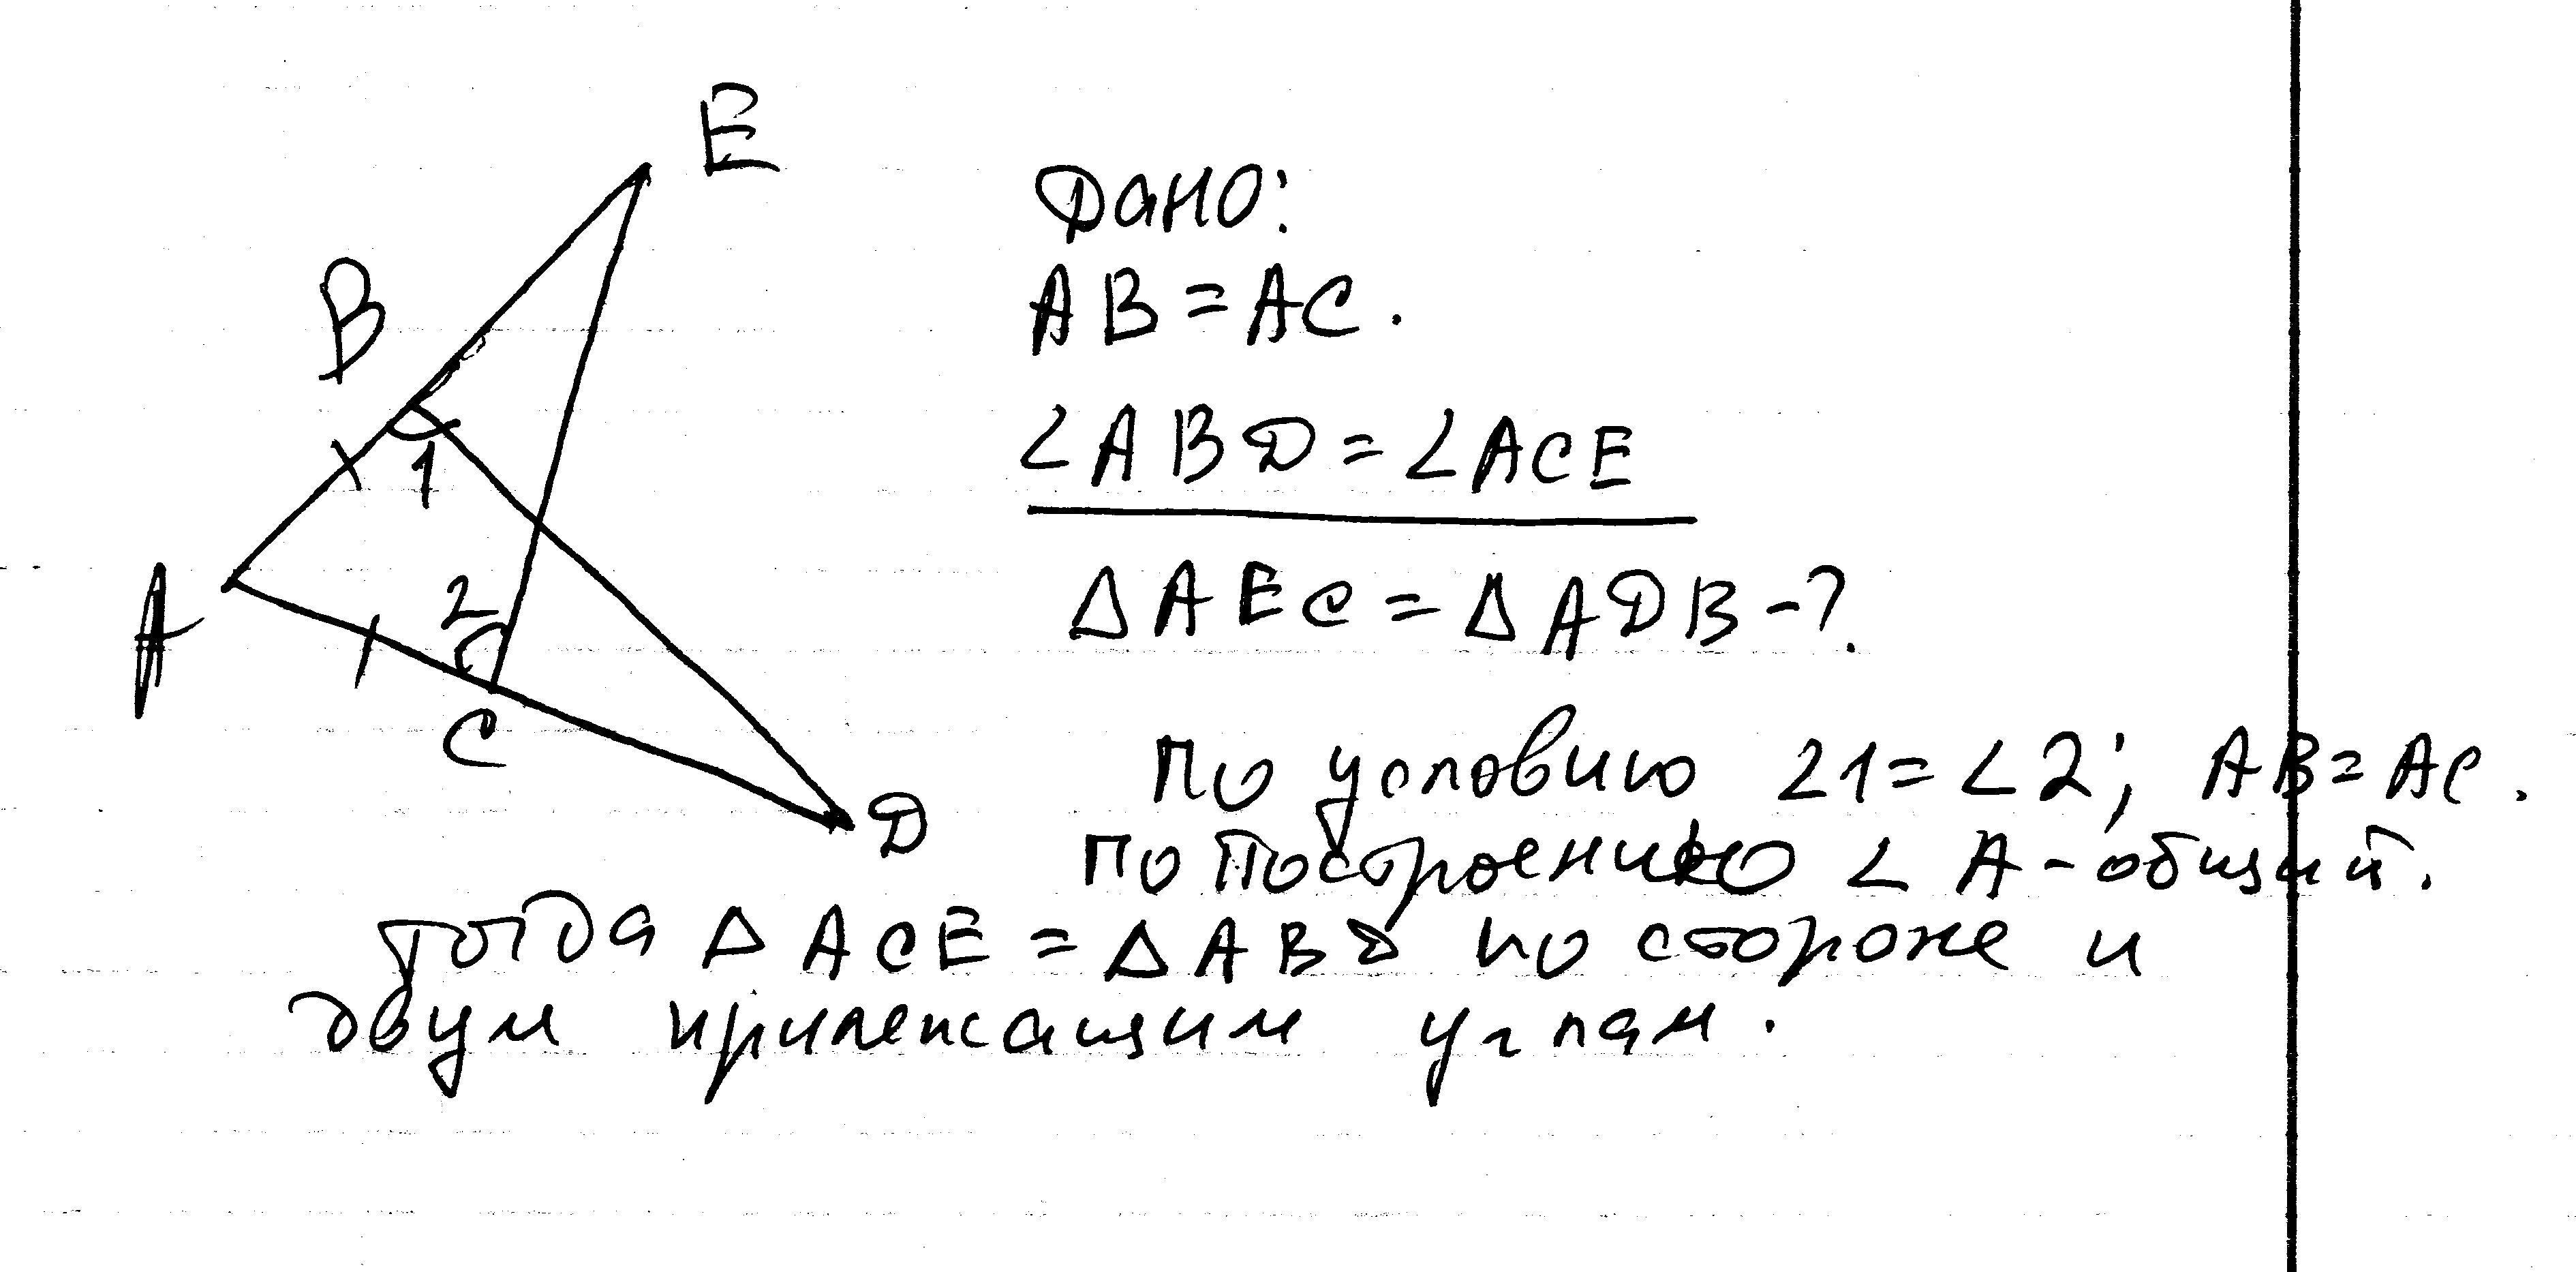 E
B
1
A
2
C
D
Дано:
AB = AC.
∠ABD = ∠ACE
ΔAEC = ΔADB - ?
По условию ∠1 = ∠2; AB = AC.
По построению ∠A - общий.
Тогда ΔACE = ΔABD по стороне и
двум прилежащим углам.